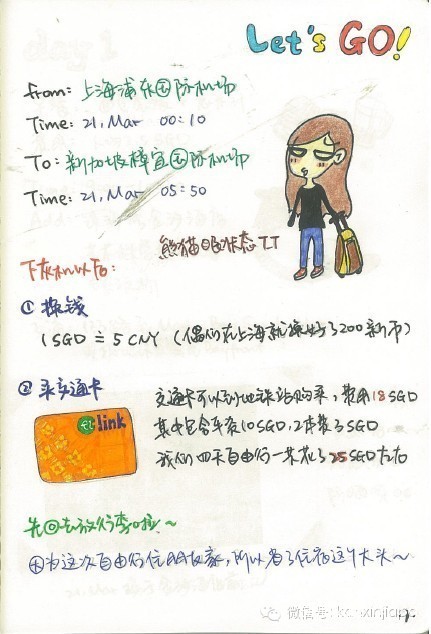 Let's GO!
From: 上海浦东国际机场
Time: 21, Mar 00:10
To: 新加坡樟宜国际机场
Time: 21, Mar 05:50
熊猫眼状态TT
下飞机以后:
① 换钱
1 SGD ≐ 5 CNY (偶们在上海就换好了200新币)
② 买交通卡
link
交通卡可以到地铁站购买, 费用18SGD
其中包含车资10SGD,
我们四天自由行一共花了25SGD左右
先回去放行李啦~
因为这次自由行住
所以省了住宿这个大头~
微信号: